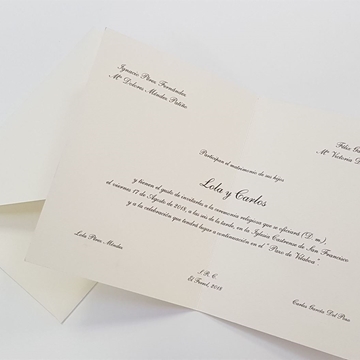 Ignacio Pérez Fernández
Mª Dolores Méndez Patiño
Félix Ga
Mª Victoria D
Participan el matrimonio de sus hijos
Lola y Carlos
y tienen el gusto de invitarle a la ceremonia religiosa que se efectuará (D. m.),
el viernes 17 de Agosto de 2018, a las seis de la tarde, en la Iglesia Castrense de San Francisco
y a la celebración que tendrá lugar a continuación en el " Pazo de Vilaboa".
Lola Pérez Méndez
S. R. C.
El Ferrol, 2018
Carlos García Del Pino